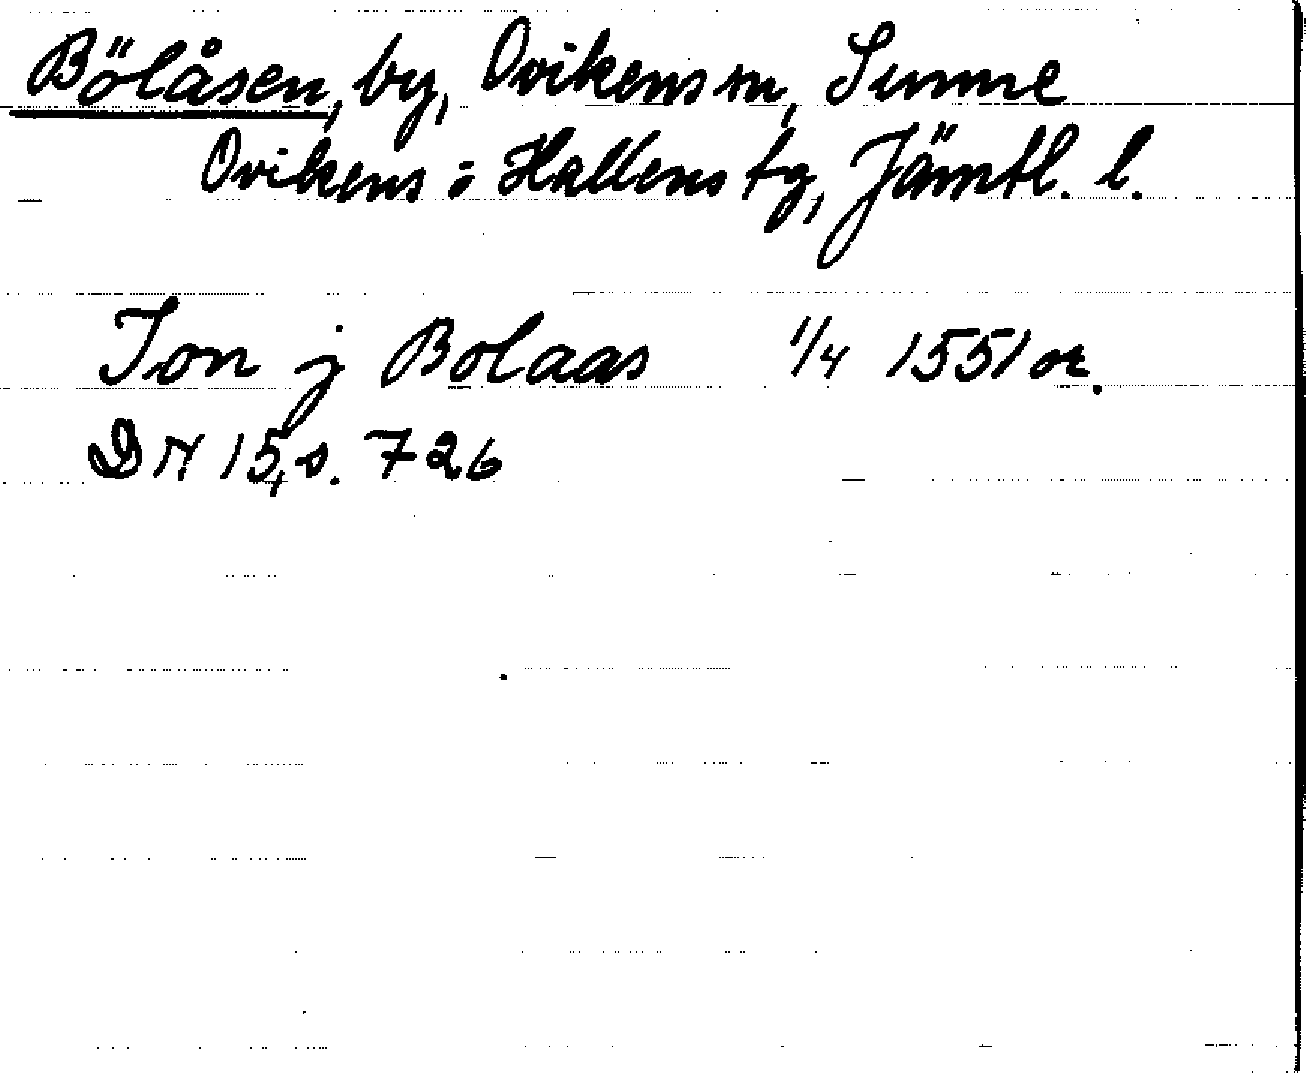 Bölåsen, by, Ovikens sn, Sunne
Ovikens o Hallens tg, Jämtl. l.
Ion j Bolaas 1/4 1551 or.
DN 15, s. 726